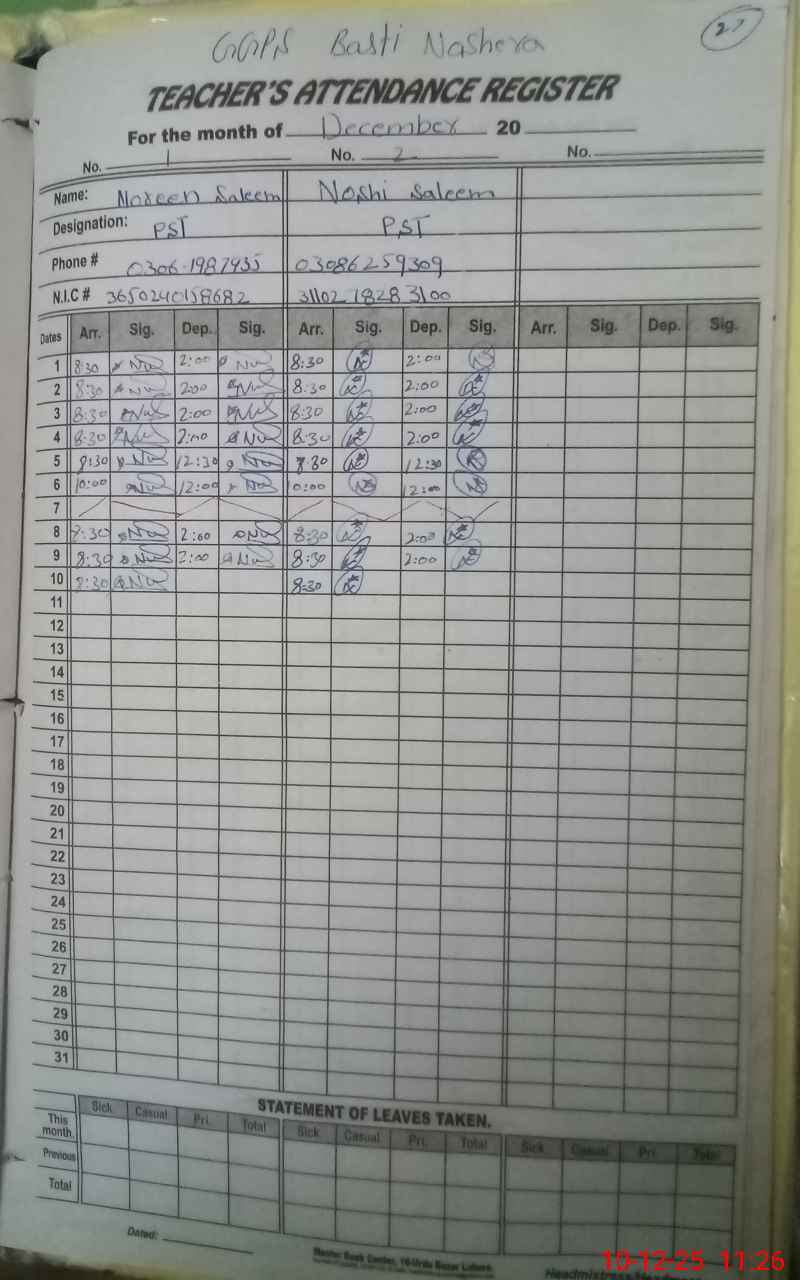 27
GGPS Basti Nashera
TEACHER'S ATTENDANCE REGISTER
For the month of December 20
No. 1 No. 2 No.
Name: Noreen Saleem Noshi Saleem
Designation: PST PST
Phone # 0306-1987935 03086259309
N.I.C # 3650240158682 3110218283100
Dates Arr. Sig. Dep. Sig. Arr. Sig. Dep. Sig. Arr. Sig. Dep. Sig.
1 8:30 2:00 8:30 2:00
2 8:30 2:00 8:30 2:00
3 8:30 2:00 8:30 2:00
4 8:30 2:00 8:30 2:00
5 8:30 12:30 8:30 12:30
6 10:00 12:00 10:00 12:00
7
8 8:30 2:00 8:30 2:00
9 8:30 2:00 8:30 2:00
10 8:30 8:30
11
12
13
14
15
16
17
18
19
20
21
22
23
24
25
26
27
28
29
30
31
STATEMENT OF LEAVES TAKEN.
Sick Casual Pri. Total Sick Casual Pri. Total Sick Casual Pri. Total
This month.
Previous
Total
Dated:
Master Book Center, 16-Urdu Bazar Lahore.
10-12-25 11:26